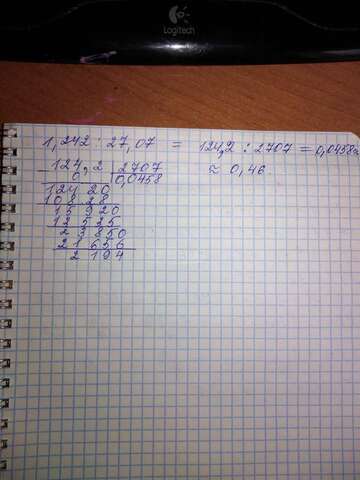 Logitech
1,242 : 27,07 = 124,2 : 2707 = 0,0458≈
124,2 2707 ≈ 0,46.
0 0,0458
124 20
108 28
15 920
13 535
2 3 850
21 656
2 194